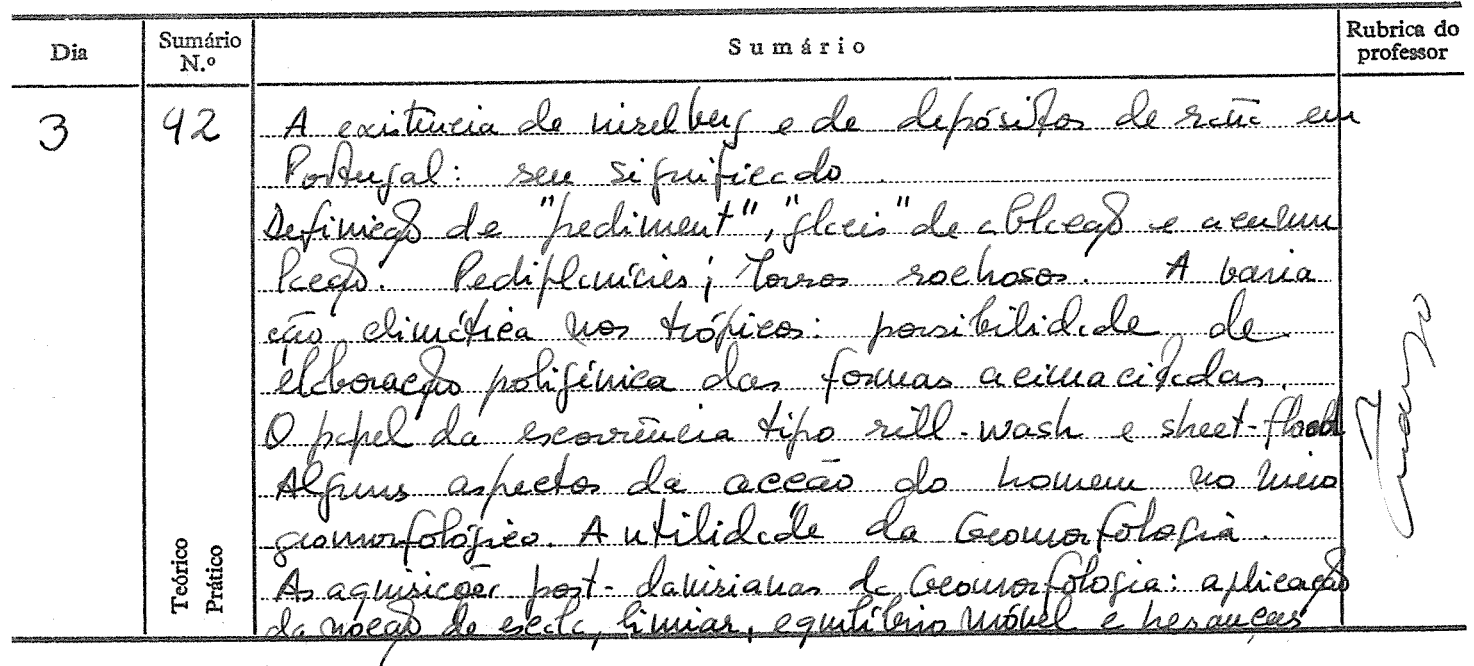 Dia
Sumário N.º
Sumário
Rubrica do professor
3
42
A existência de inselberg e de depósitos de raña em
Portugal: seu significado.
Definição de "pediment", "glacis" de ablação e acumu
lação. Pediplanícies; Torsos rochosos. A varia
ção climática nos trópicos: possibilidade de
elaboração poligénica das formas acima citadas.
O papel da escorrência tipo rill-wash e sheet-flood
Alguns aspectos da acção do homem no meio
geomorfológico. A utilidade da Geomorfologia.
As aquisições post-davisianas da Geomorfologia: aplicação
da noção de escala, limiar, equilíbrio móvel e heranças
Teórico
Prático